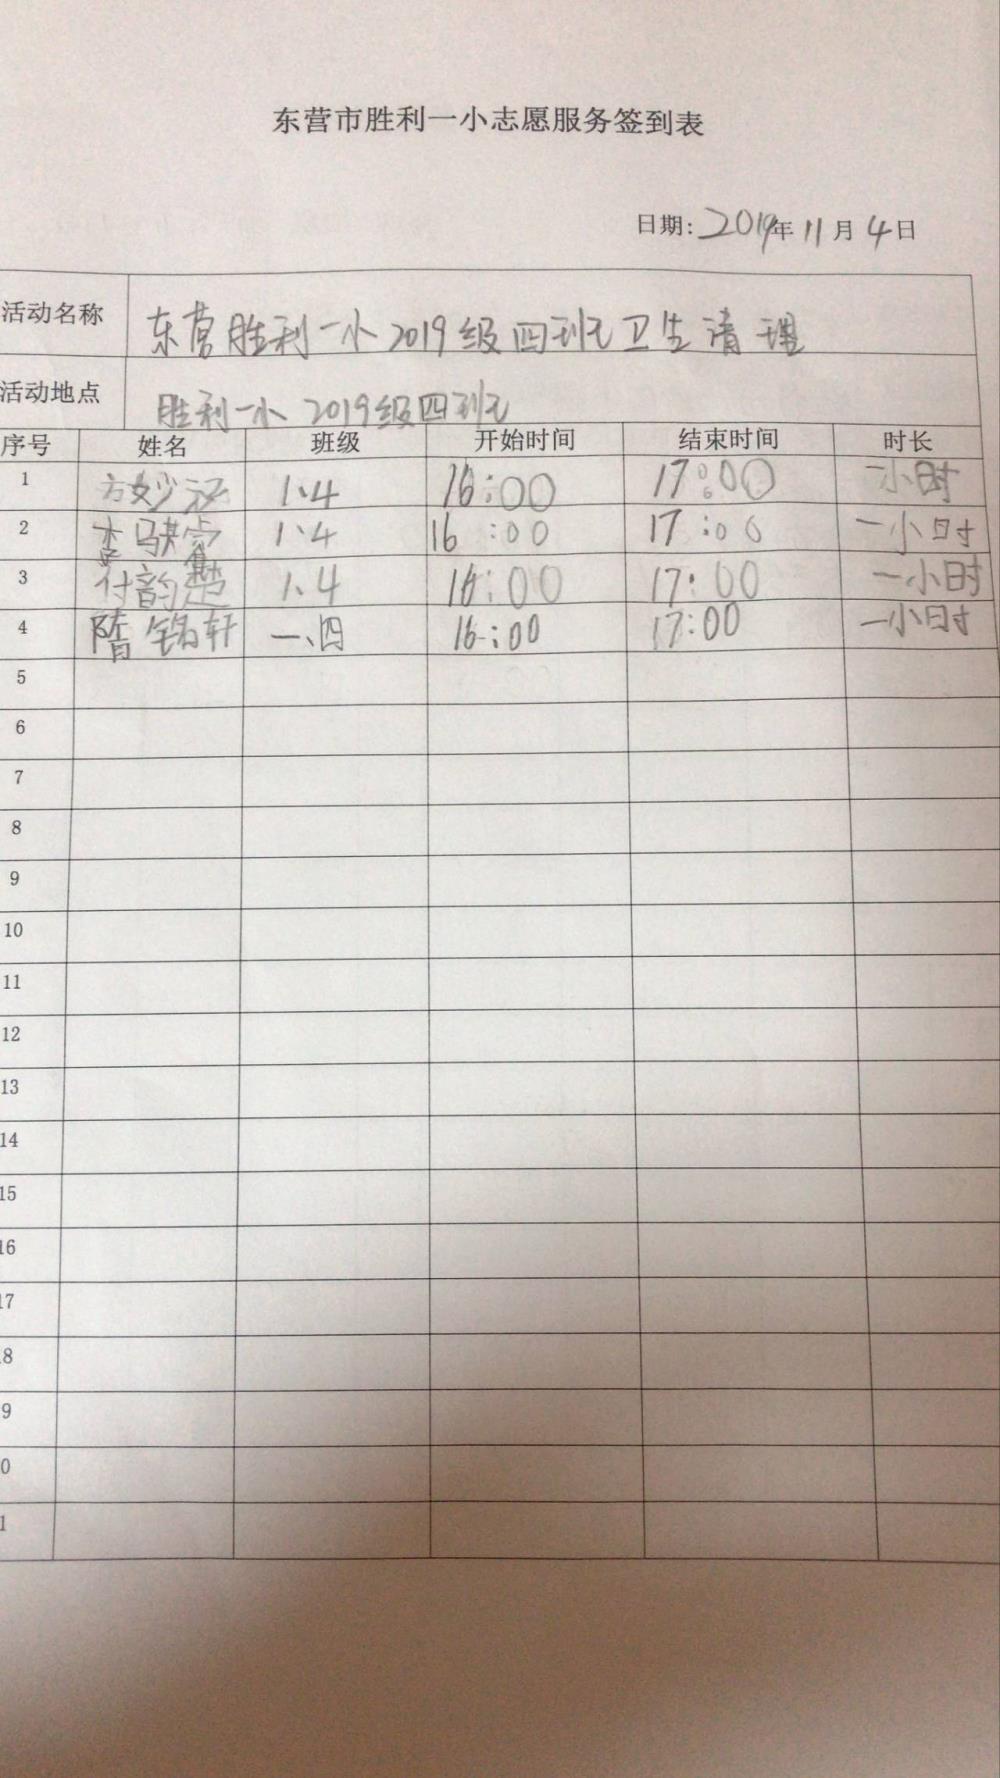 东营市胜利一小志愿服务签到表
日期: 2019年 11月 4日
活动名称 东营胜利一小2019级四班卫生清理
活动地点 胜利一小2019级四班
序号 姓名 班级 开始时间 结束时间 时长
1 方妙汉 1、4 16:00 17:00 一小时
2 1、4 16:00 17:00 一小时
3 付韵楚 1、4 16:00 17:00 一小时
4 隋铭轩 一、四 16:00 17:00 一小时
5
6
7
8
9
10
11
12
13
14
15
16
17
8
9
0
1